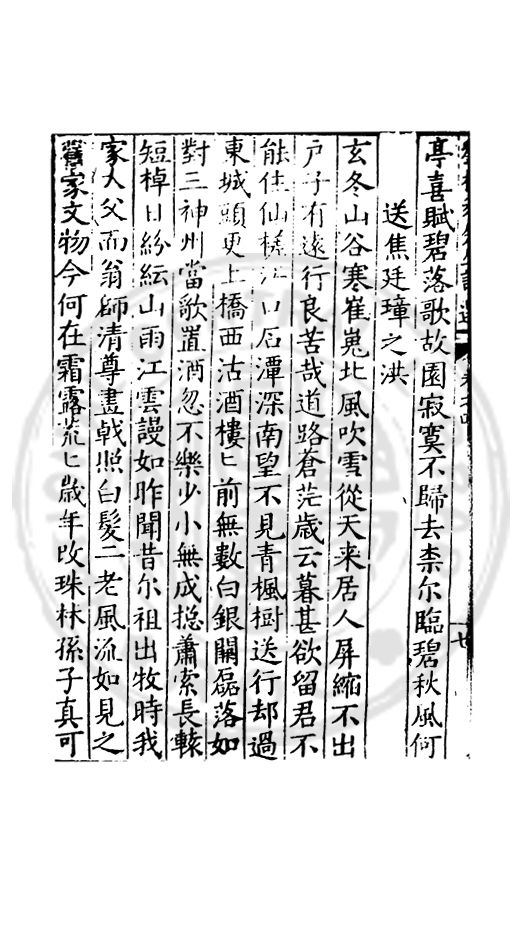 亭喜賦碧落歌故園寂寞不歸去柰尔臨碧秋風何
送焦廷璋之洪
玄冬山谷寒崔嵬北風吹雪從天来居人屏縮不出
戸子有遠行良苦哉道路蒼茫歳云暮甚欲留君不
能住仙槎江口石潭深南望不見青楓樹送行却過
東城頭更上橋西沽酒樓匕前無數白銀闕磊落如
對三神州當歌置酒忽不樂少小無成揔蕭索長轅
短棹日紛紜山雨江雲謾如昨聞昔尔祖出牧時我
家大父而翁師清尊畫戟照白髮二老風流如見之
舊家文物今何在霜露荒匕歳年改珠林孫子真可